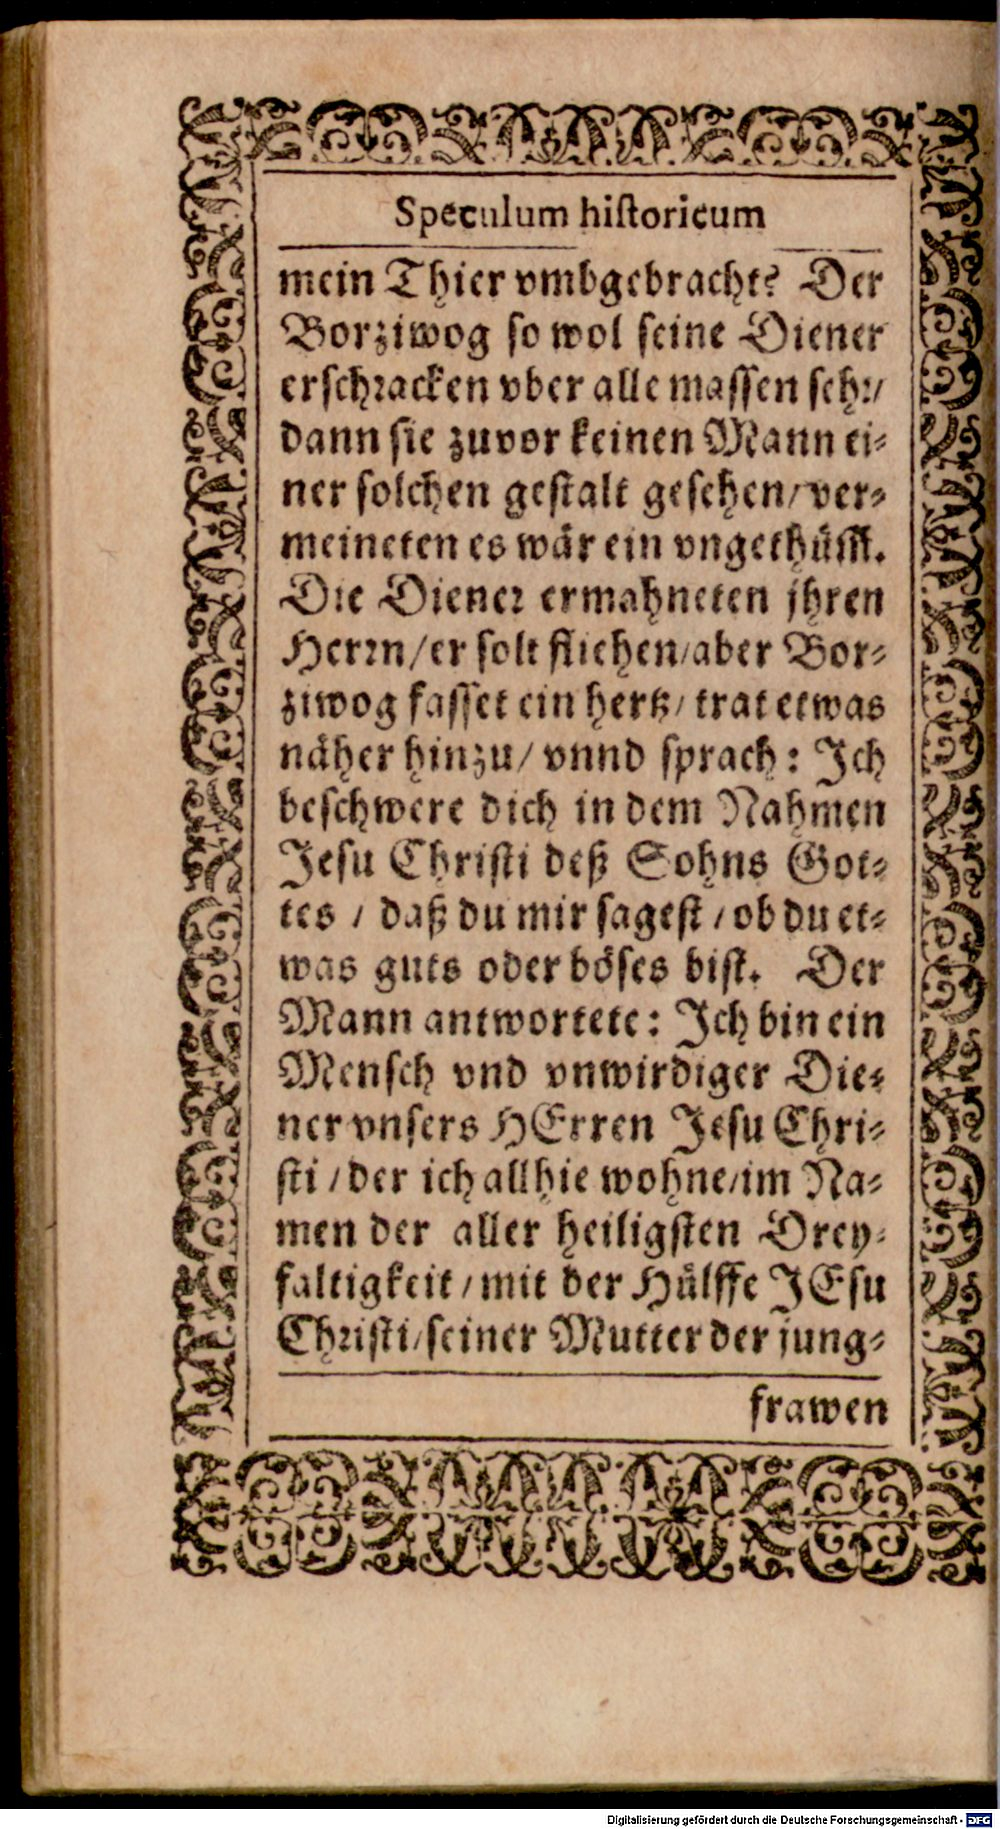 Speculum historicum
mein Thier vmbgebracht? Der
Borziwog so wol seine Diener
erschracken vber alle massen sehr/
dann sie zuvor keinen Mann ei-
ner solchen gestalt gesehen/ ver-
meineten es wär ein vngethüm.
Die Diener ermahneten jhren
Herrn/ er solt fliehen/ aber Bor-
ziwog fasset ein hertz/ trat etwas
näher hinzu/ vnnd sprach: Jch
beschwere dich in dem Nahmen
Jesu Christi deß Sohns Got-
tes / daß du mir sagest / ob du et-
was guts oder böses bist. Der
Mann antwortete: Jch bin ein
Mensch vnd vnwirdiger Die-
ner vnsers HErren Jesu Chri-
sti / der ich allhie wohne/ im Na-
men der aller heiligsten Drey-
faltigkeit / mit der Hülffe JEsu
Christi/ seiner Mutter der jung-
frawen
Digitalisierung gefördert durch die Deutsche Forschungsgemeinschaft - DFG